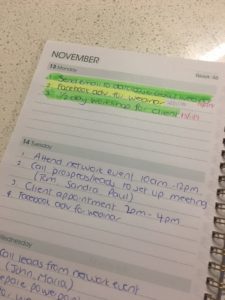 NOVEMBER
13 Monday
Week 46
1. Send email to database about webinar
2. Facebook adv for webinar
3. 1/2 day workshop for client
14 Tuesday
1. Attend network event 10am - 12pm
2. Call prospects/leads to set up meeting
(Kim, Sandra, Paul)
3. Client appointment 2pm - 4pm
4. Facebook adv for webinar
Wednesday
Call leads from network event
(John, Maria)